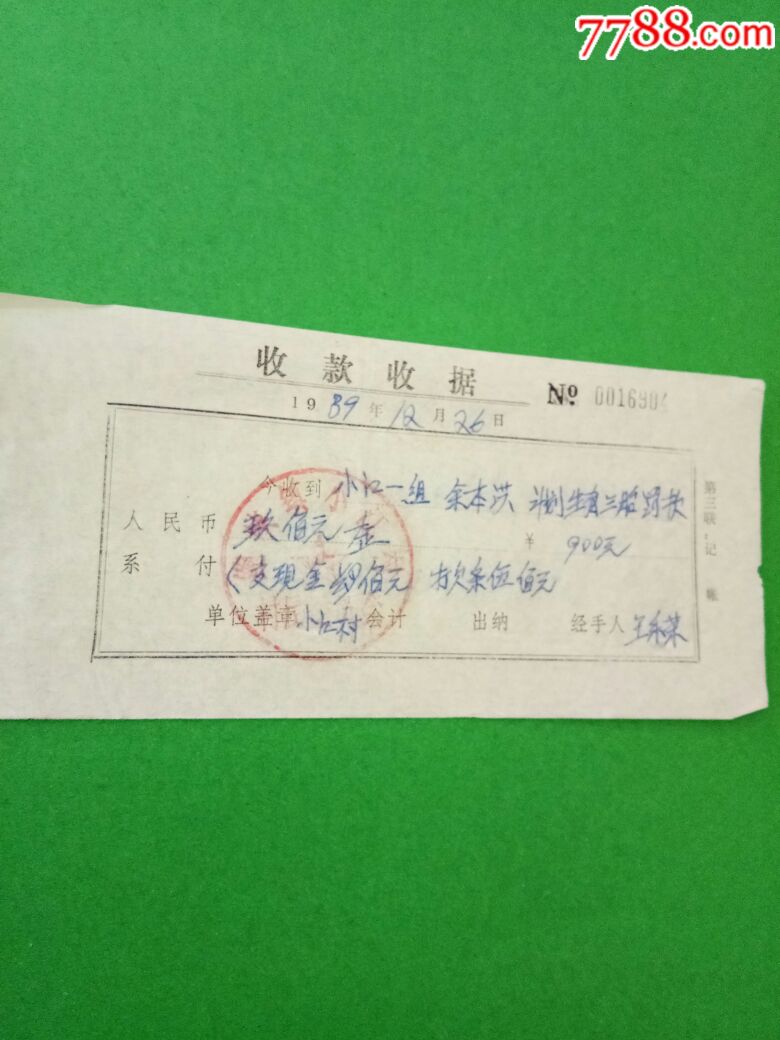 7788.com
收款收据 № 0016904
1989年12月26日
今收到 小江一组 余本洪 计划生育三胎罚款
人民币 玖佰元 ¥ 900元
系付 支现金肆佰元 欠条伍佰元
单位盖章 小江村 会计 出纳 经手人 王
第三联:记账